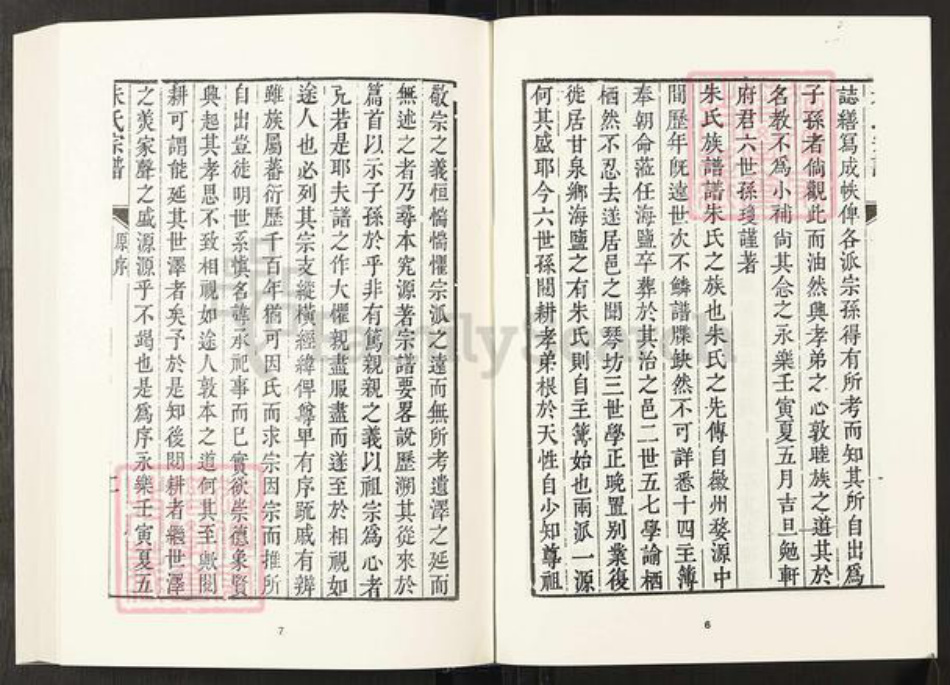 誌繕寫成帙俾各派宗孫得有所考而知其所自出為
子孫者倘觀此而油然興孝弟之心敦睦族之道其於
名教不為小補尚其念之永樂壬寅夏五月吉旦勉軒
府君六世孫瓊謹著
朱氏族譜譜朱氏之族也朱氏之先傳自徽州婺源中
間歷年旣遠世次不鱗譜牒缺然不可詳悉十四主簿
奉朝命蒞任海鹽卒葬於其治之邑二世五七學諭栖
栖然不忍去遂居邑之聞琴坊三世學正晚置別業復
徙居甘泉鄉海鹽之有朱氏則自主簿始也兩派一源
何其盛耶今六世孫閱耕孝弟根於天性自少知尊祖
6
敬宗之義恒惴惴懼宗派之遠而無所考遺澤之延而
無述之者乃尋本究源著宗譜要畧說歷溯其從來於
篇首以示子孫於乎非有篤親親之義以祖宗為心者
兄若是耶夫譜之作大懼親盡服盡而遂至於相視如
途人也必列其宗支縱橫經緯俾尊卑有序疏戚有辨
雖族屬蕃衍歷千百年猶可因氏而求宗因宗而推所
自出豈徒明世系慎名諱承祀事而已實欲崇德象賢
典起其孝思不致相視如途人敦本之道何其至歟閱
耕可謂能延其世澤者矣予於是知後閱耕者繼世澤
之美家聲之盛源源乎不竭也是為序永樂壬寅夏五
朱氏宗譜
原序
7